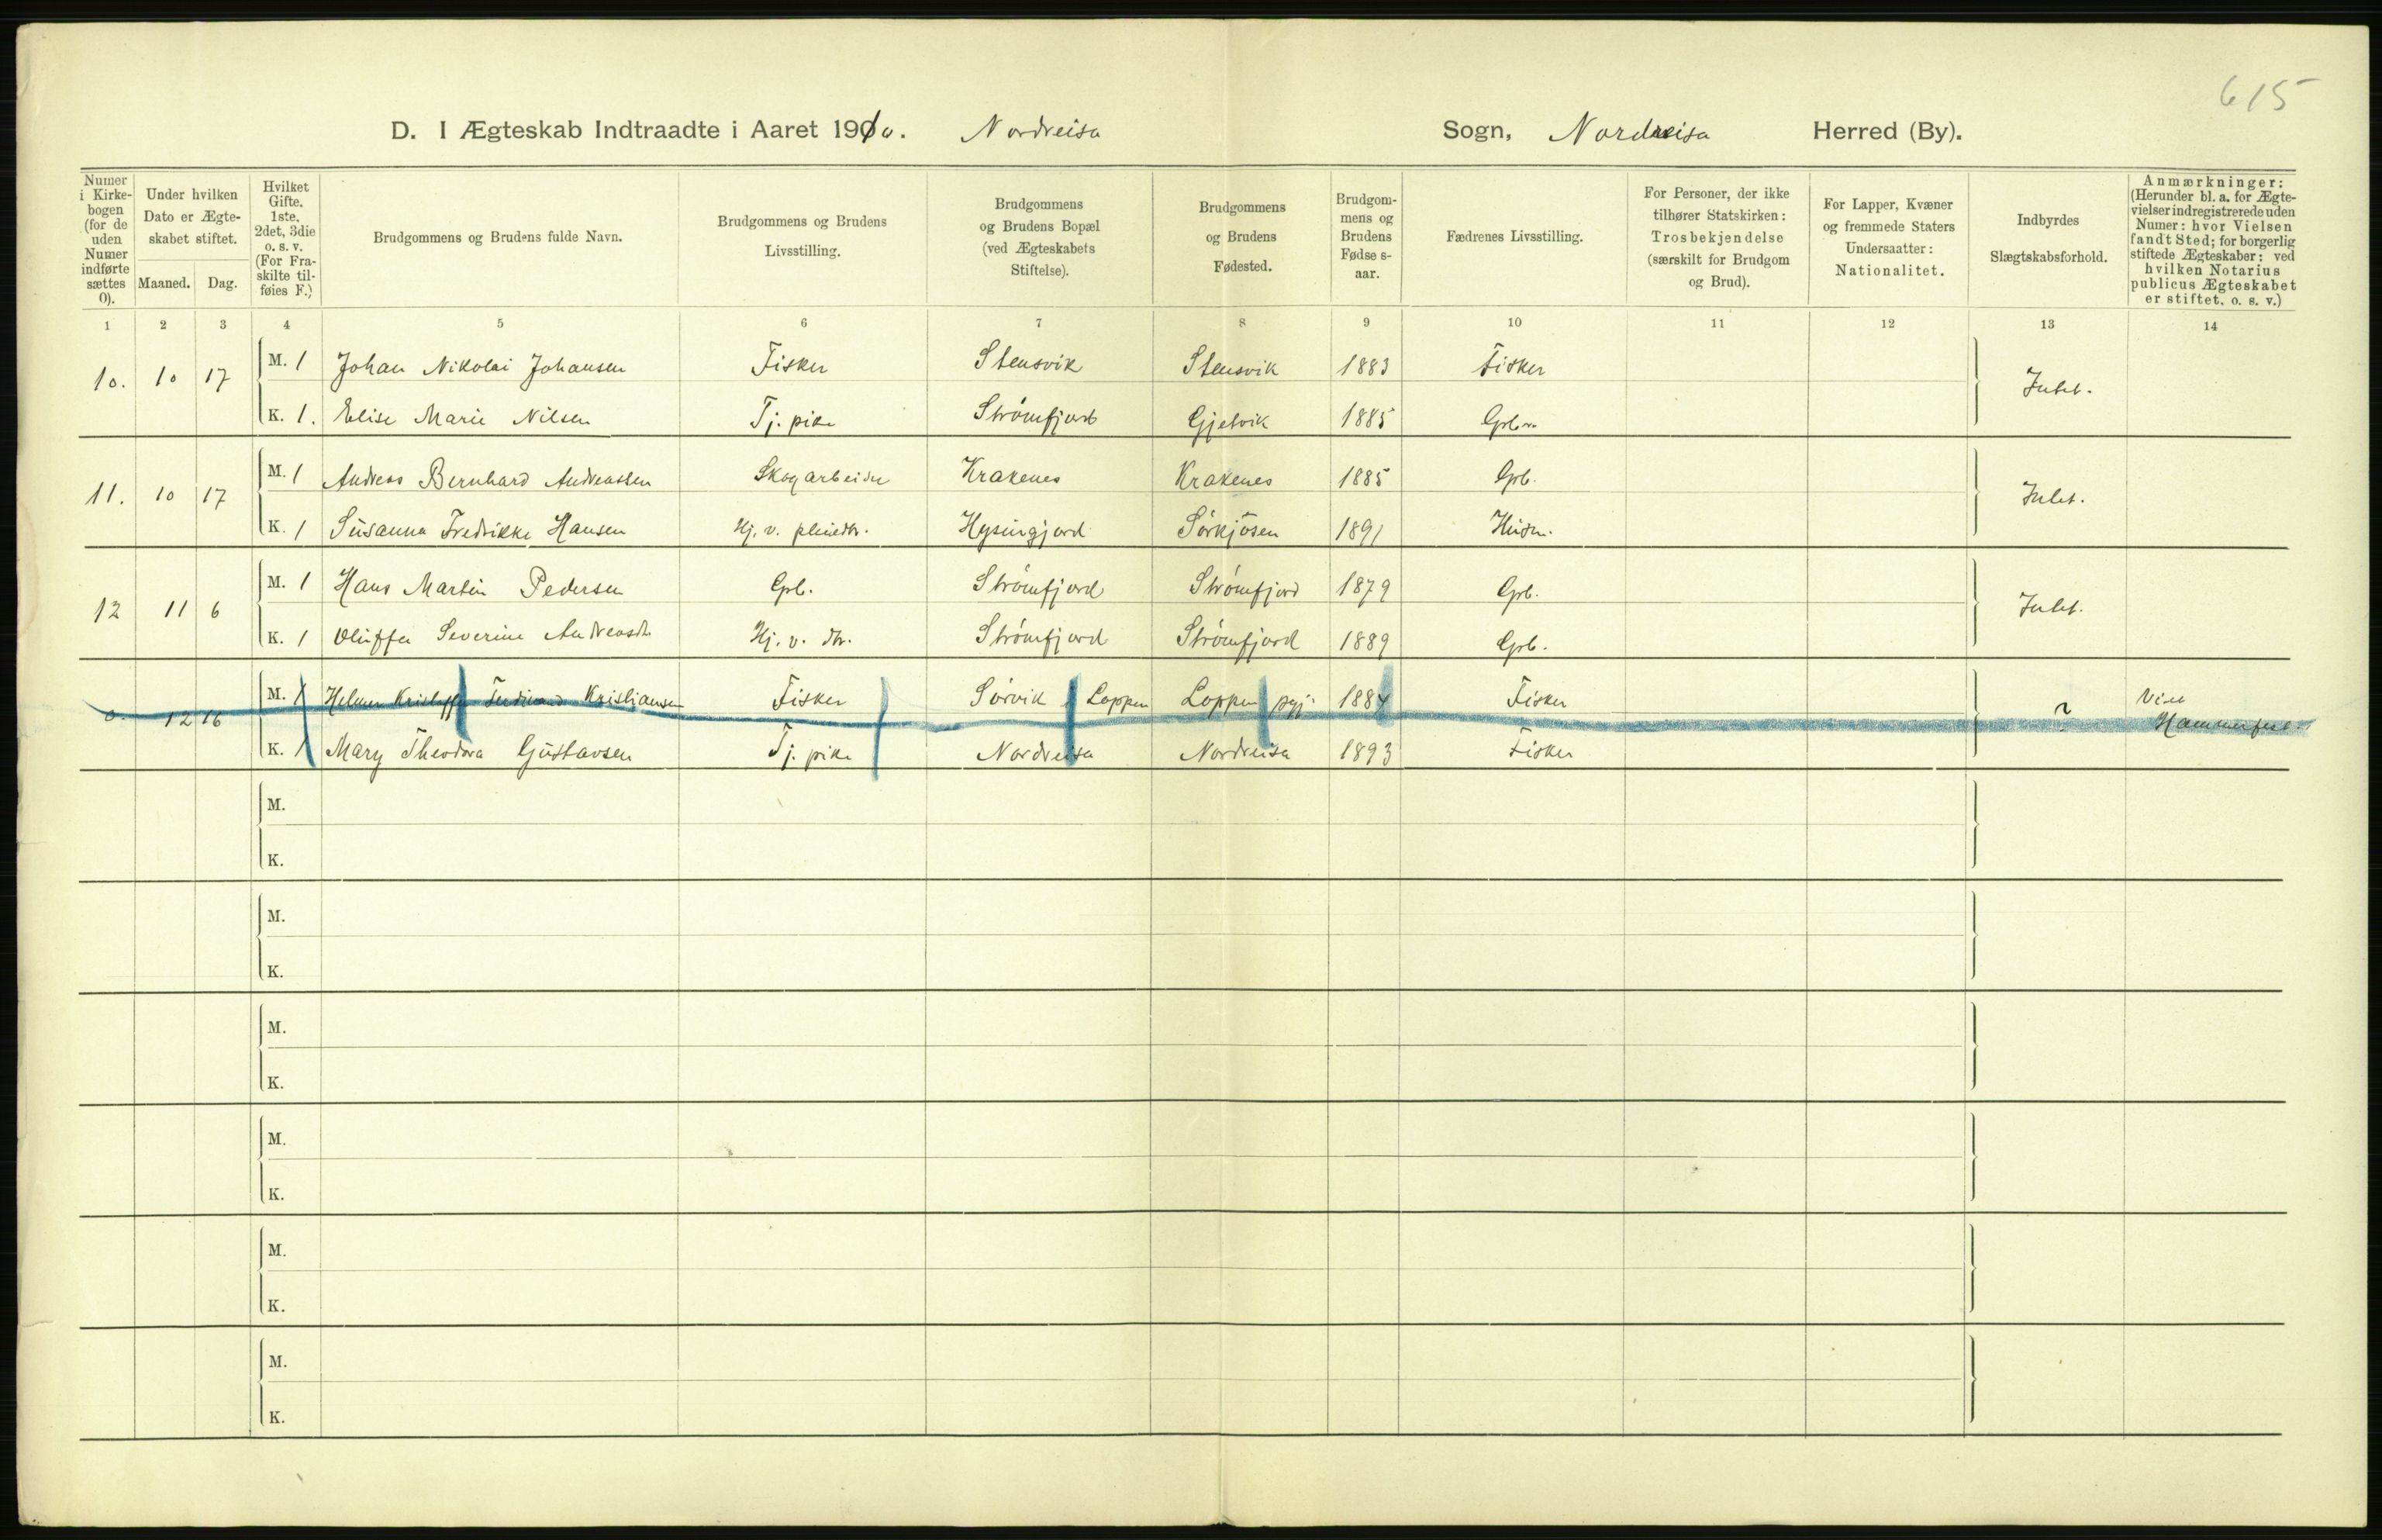 615
D. I Ægteskab Indtraadte i Aaret 1910. Nordreisa Sogn, Nordreisa Herred (By).
Numer i Kirkebogen (for de uden Numer indførte sættes 0).
Under hvilken Dato er Ægteskabet stiftet.
Maaned. Dag.
Hvilket Gifte. 1ste, 2det, 3die o. s. v. (For Fraskilte tilføies F.)
Brudgommens og Brudens fulde Navn.
Brudgommens og Brudens Livsstilling.
Brudgommens og Brudens Bopæl (ved Ægteskabets Stiftelse).
Brudgommens og Brudens Fødested.
Brudgommens og Brudens Fødselsaar.
Fædrenes Livsstilling.
For Personer, der ikke tilhører Statskirken: Trosbekjendelse (særskilt for Brudgom og Brud).
For Lapper, Kvæner og fremmede Staters Undersaatter: Nationalitet.
Indbyrdes Slægtskabsforhold.
Anmærkninger: (Herunder bl. a. for Ægtevielser indregistrerede uden Numer: hvor Vielsen fandt Sted; for borgerlig stiftede Ægteskaber: ved hvilken Notarius publicus Ægteskabet er stiftet, o. s. v.)
1 2 3 4 5 6 7 8 9 10 11 12 13 14
10. 10 17 M. 1 Johan Nikolai Johansen Fisker Stensvik Stensvik 1883 Fisker Intet.
K. 1. Elise Marie Nilsen Tj. pike Strömfjord Gjelvik 1885 Grbr.
11. 10 17 M. 1 Andreas Bernhard Andreassen Skogarbeider Krakenes Krakenes 1885 Grb. Intet.
K. 1 Susanna Fredrikke Hansen Hj. v. Hysingjord Sörkjösen 1891 Husm.
12 11 6 M. 1 Hans Martin Pedersen Grb. Strömfjord Strömfjord 1879 Grb. Intet.
K. 1 Oluffa Severine Andreasdtr. Hj. v. dtr. Strömfjord Strömfjord 1889 Grb.
0. 12 16 M. 1 Helmer Kristoffer Ferdinand Kristiansen Fisker Sörvik, Loppen Loppen pgj. 1884 Fisker ? Viet Hammerfest.
K. 1 Mary Theodora Gustavsen Tj. pike Nordreisa Nordreisa 1893 Fisker
M.
K.
M.
K.
M.
K.
M.
K.
M.
K.
M.
K.